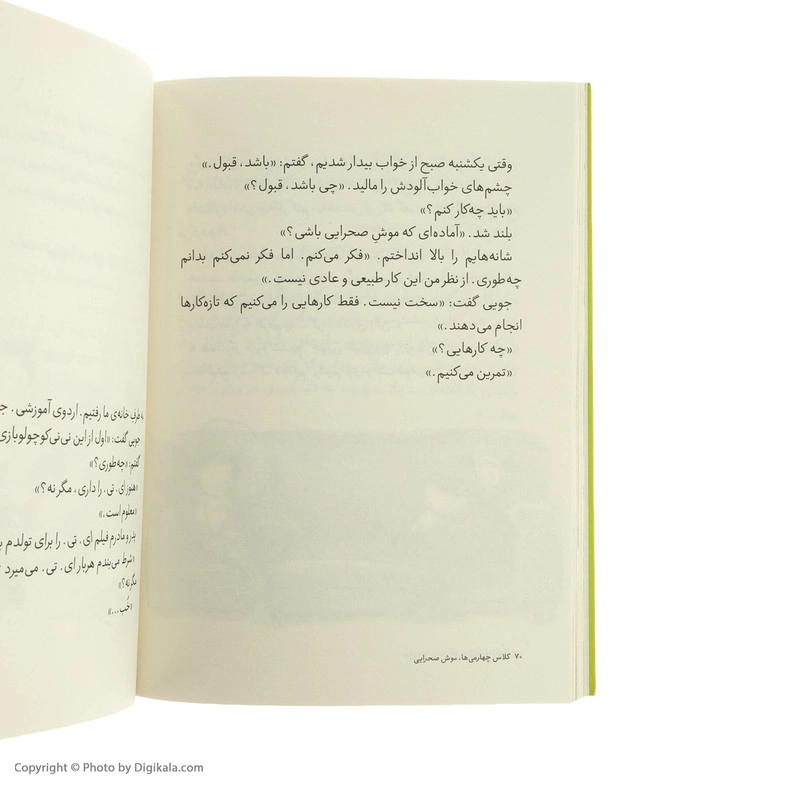 وقتی یکشنبه صبح از خواب بیدار شدیم، گفتم: «باشد، قبول.»
چشم‌های خواب‌آلودش را مالید. «چی باشد، قبول؟»
«باید چه‌کار کنم؟»
بلند شد. «آماده‌ای که موشِ صحرایی باشی؟»
شانه‌هایم را بالا انداختم. «فکر می‌کنم. اما فکر نمی‌کنم بدانم
چه‌طوری. از نظر من این کار طبیعی و عادی نیست.»
جویی گفت: «سخت نیست. فقط کارهایی را می‌کنیم که تازه‌کارها
انجام می‌دهند.»
«چه کارهایی؟»
«تمرین می‌کنیم.»
۷۰ کلاس چهارمی‌ها، موش صحرایی
به طرف خانه‌ی ما رفتیم. اردوی آموزشی.
جویی گفت: «اول از این نی‌نی‌کوچولوبازی
گفتم: «چه‌طوری؟»
«هنوز ای. تی. را داری، مگر نه؟»
«معلوم است.»
پدر و مادرم فیلم ای. تی. را برای تولدم
«شرط می‌بندم هربار ای. تی. می‌میرد
مگر نه؟»
«خُب...»
Copyright © Photo by Digikala.com